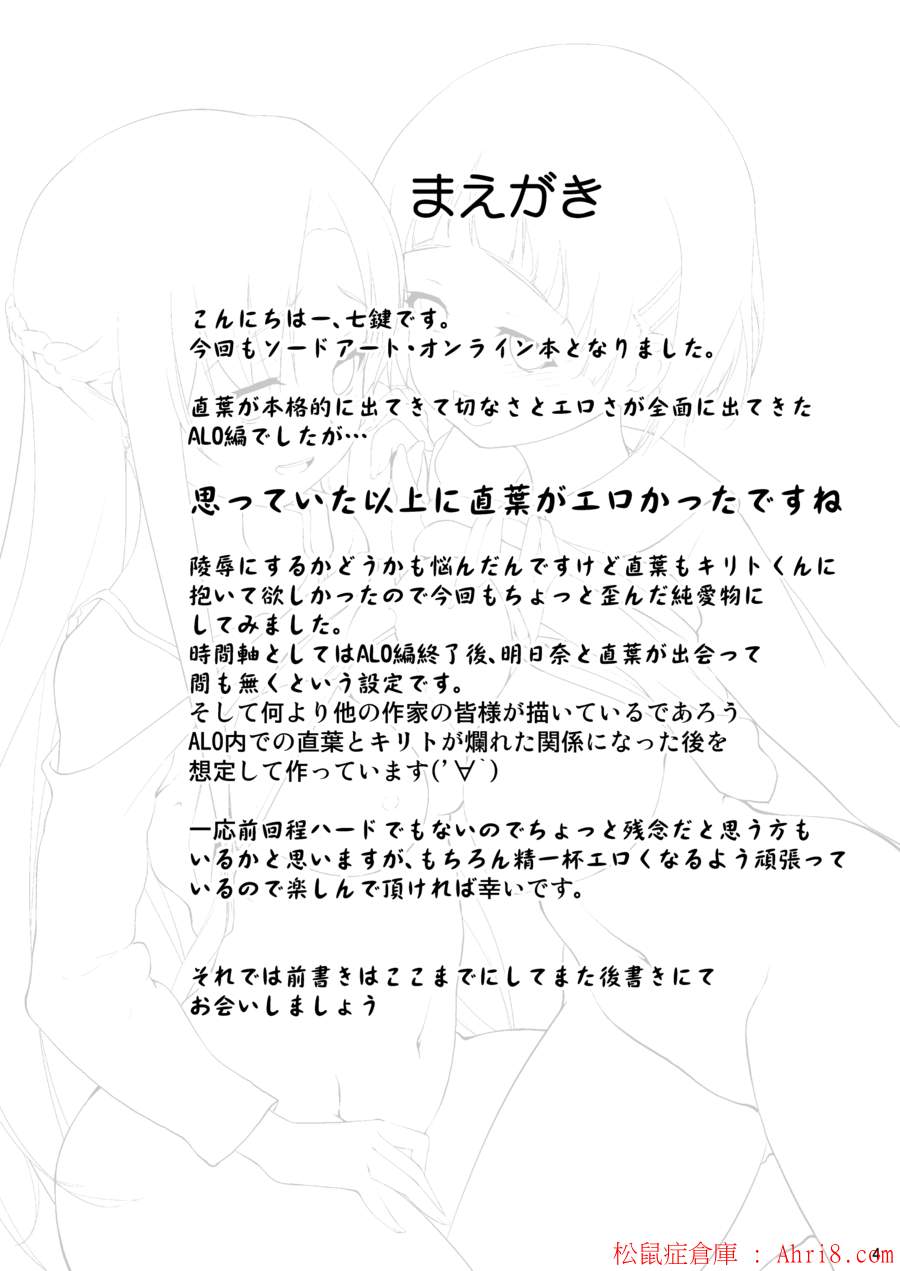 まえがき
こんにちはー、七鍵です。
今回もソードアート・オンライン本となりました。
直葉が本格的に出てきて切なさとエロさが全面に出てきた
ALO編でしたが…
思っていた以上に直葉がエロかったですね
陵辱にするかどうかも悩んだんですけど直葉もキリトくんに
抱いて欲しかったので今回もちょっと歪んだ純愛物に
してみました。
時間軸としてはALO編終了後、明日奈と直葉が出会って
間も無くという設定です。
そして何より他の作家の皆様が描いているであろう
ALO内での直葉とキリトが爛れた関係になった後を
想定して作っています('∀`)
一応前回程ハードでもないのでちょっと残念だと思う方も
いるかと思いますが、もちろん精一杯エロくなるよう頑張って
いるので楽しんで頂ければ幸いです。
それでは前書きはここまでにしてまた後書きにて
お会いしましょう
4
松鼠症倉庫 : Ahri8.com